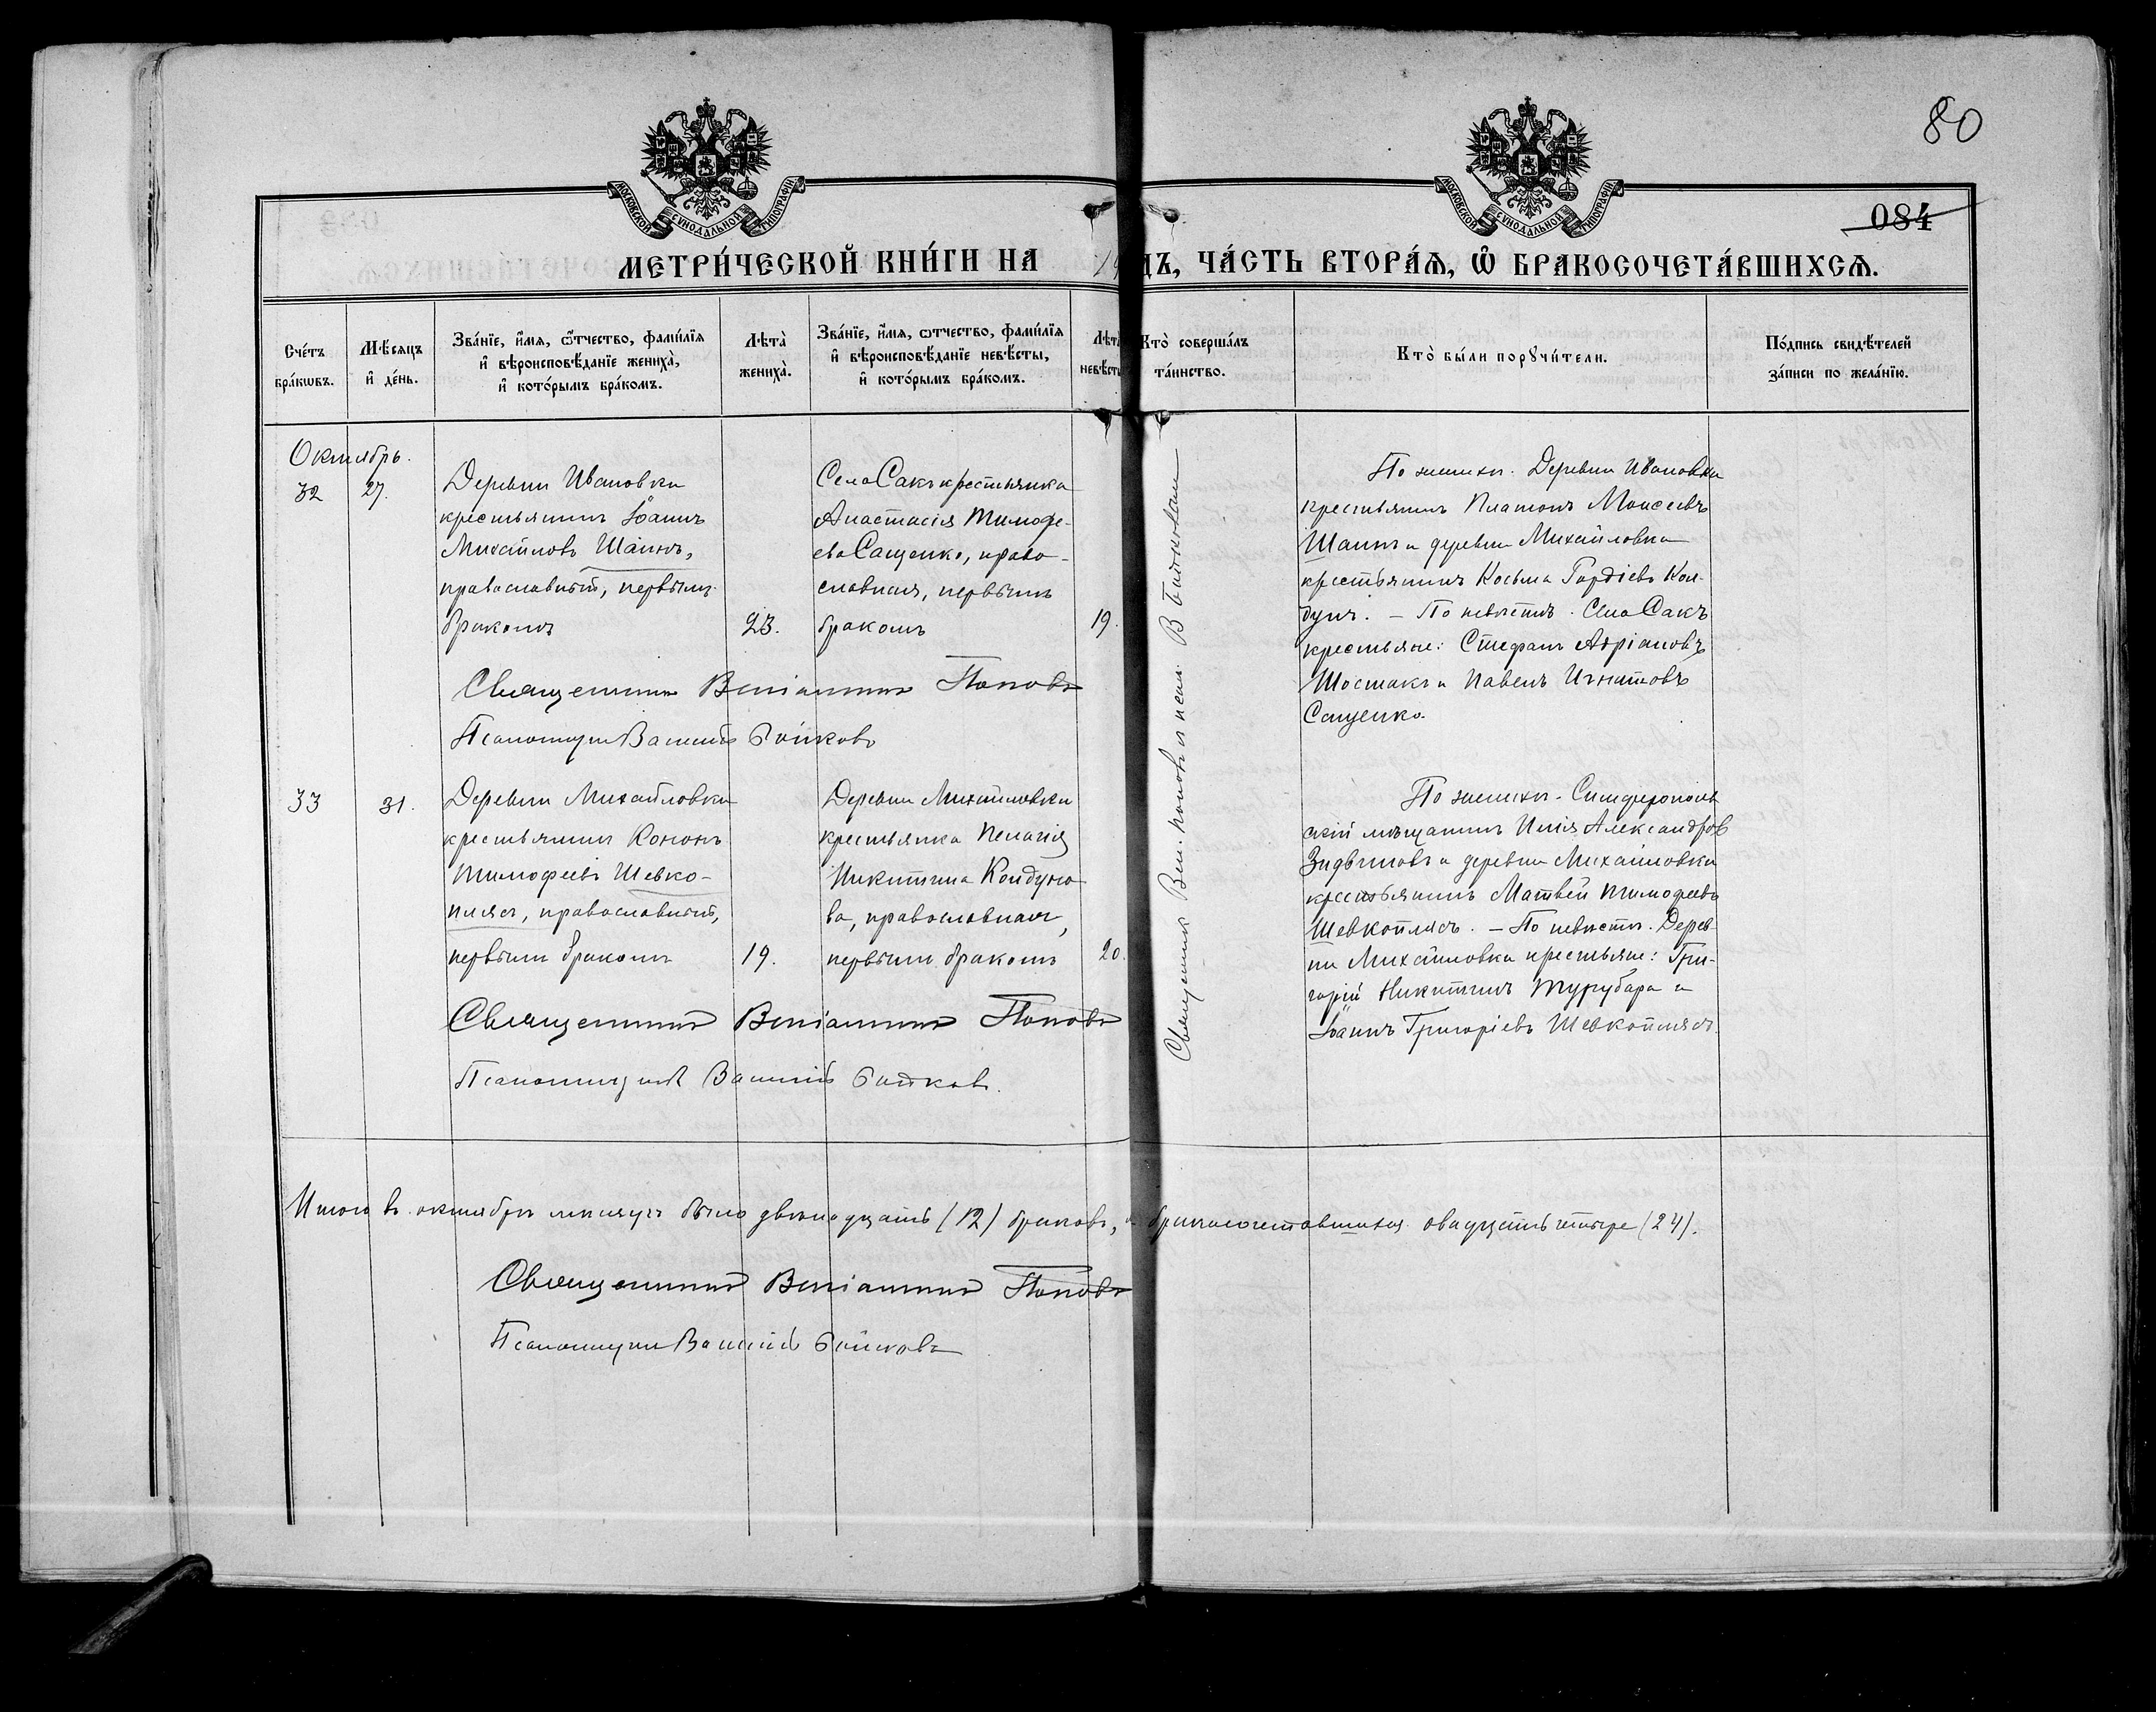 80
МОСКОВСКОЙ СѴНОДАЛЬНОЙ ТИПОГРАФІИ
МОСКОВСКОЙ СѴНОДАЛЬНОЙ ТИПОГРАФІИ
084
МЕТРИ́ЧЕСКОЙ КНИ́ГИ НА 19 ДЪ, ЧА́СТЬ ВТОРА́Ѧ, Ѡ҆ БРАКОСОЧЕТА́ВШИХСѦ.
Сче́тъ
бра́кѡвъ.
Мѣ́сяцъ
и҆ де́нь.
Зва́нїе, и҆́мя, ѻ҆́тчество, фами́лїя
и҆ вѣроисповѣ́данїе жениха̀,
и҆ кото́рымъ бра́комъ.
Лѣта̀
жениха̀.
Зва́нїе, и҆́мя, ѻ҆́тчество, фами́лїя
и҆ вѣроисповѣ́данїе невѣ́сты,
и҆ кото́рымъ бра́комъ.
Лѣта̀
невѣ́сты
Кто̀ соверша́лъ
та́инство.
Кто̀ бы́ли порꙋчи́тели.
По́дпись свидѣ́телей
за́писи по жела́нїю.
Октябрь.
32
27.
Деревни Ивановки
крестьянинъ Іоаннъ
Михайловъ Шаинъ,
православный, первымъ
бракомъ
23.
Села Сакъ крестьянка
Анастасія Тимофе-
ева Сащенко, право-
славная, первымъ
бракомъ
19.
По женихѣ. Деревни Ивановки
крестьянинъ Платонъ Моисеевъ
Шаинъ и деревни Михайловки
крестьянинъ Косьма Гордіевъ Кол-
дунъ. – По невѣстѣ. Села Сакъ
крестьяне: Стефанъ Адріановъ
Шостакъ и Павелъ Игнатовъ
Сащенко.
Священникъ Веніаминъ Поповъ
Псаломщикъ Василій Бойковъ
33
31.
Деревни Михайловки
крестьянинъ Кононъ
Тимофеевъ Шевко-
плясъ, православный,
первымъ бракомъ
19.
Деревни Михайловки
крестьянка Пелагія
Никитина Колдуно-
ва, православная,
первымъ бракомъ
20.
По женихѣ. Симферополь
скій мѣщанинъ Илія Александров
и деревни Михайловки
крестьянинъ Матвей Тимофеевъ
Шевкоплясъ. – По невѣстѣ. Дерев-
ни Михайловки крестьяне: Гри-
горій Никитинъ Турубара и
Іоаннъ Григоріевъ Шевкоплясъ.
Священникъ Веніаминъ Поповъ
Псаломщикъ Василій Бойковъ.
Священник Вен. Поповъ и псал. В.
Итого въ октябрѣ мѣсяцѣ было двѣнадцать (12) браковъ, а бракосочетавшихся двадцать четыре (24).
Священникъ Веніаминъ Поповъ
Псаломщикъ Василій Бойковъ